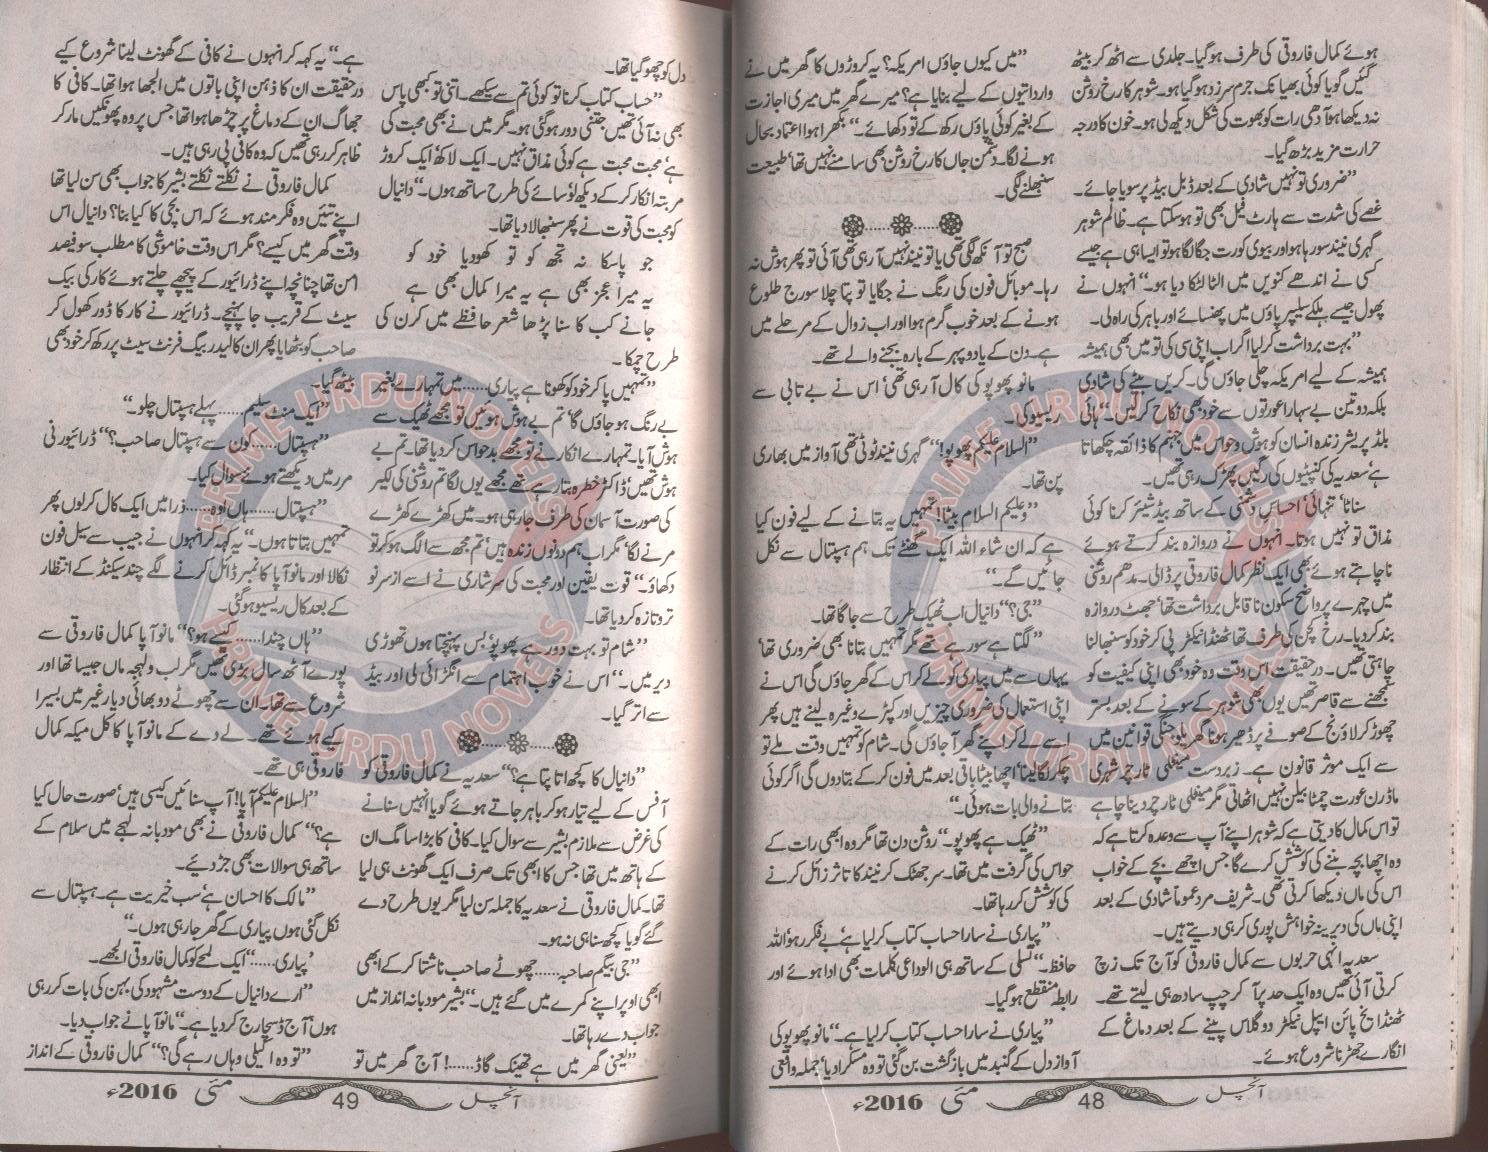 ہوئے کمال فاروقی کی طرف ہوگیا۔ جلدی سے اٹھ کر بیٹھ
گئیں گویا کوئی بھیانک جرم سرزد ہوگیا ہو۔ شوہر کا رخ روشن
نہ دیکھا ہو آدھی رات کو بھوت کی شکل دیکھ لی ہو۔ خون کا درجہ
حرارت مزید بڑھ گیا۔
”ضروری تو نہیں شادی کے بعد ڈبل بیڈ پر سویا جائے۔
غصے کی شدت سے ہارٹ فیل بھی تو ہوسکتا ہے۔ ظالم شوہر
گہری نیند سو رہا ہو اور بیوی کو رت جگا لگا ہو تو ایسا ہی ہے جیسے
کسی نے اندھے کنویں میں الٹا لٹکا دیا ہو۔“ انہوں نے
پھول جیسے ہلکے سلیپر پاؤں میں پھنسائے اور باہر کی راہ لی۔
”بہت برداشت کرلیا اگر اب اپنی سی کی تو میں بھی ہمیشہ
ہمیشہ کے لیے امریکہ چلی جاؤں گی۔ کریں بیٹے کی شادی
بلکہ دو تین بے سہارا عورتوں سے خود بھی نکاح کرلیں۔“ ہائی
بلڈ پریشر زندہ انسان کو ہوش و حواس میں جہنم کا ذائقہ چکھاتا
ہے سعدیہ کی کنپٹیوں کی رگیں پھڑک رہی تھیں۔
سناٹا‘ تنہائی‘ احساس دشمنی کے ساتھ بیڈ شیئر کرنا کوئی
مذاق تو نہیں ہوتا۔ انہوں نے دروازہ بند کرتے ہوئے
ناچاہتے ہوئے بھی ایک نظر کمال فاروقی پر ڈالی۔ مدھم روشنی
میں چہرے پر واضح سکون ناقابل برداشت تھا‘ جھٹ دروازہ
بند کردیا۔ رخ کچن کی طرف تھا ٹھنڈا نیکٹر پی کر خود کو سنبھالنا
چاہتی تھیں۔ درحقیقت اس وقت وہ خود بھی اپنی کیفیت کو
سمجھنے سے قاصر تھیں یوں بھی شوہر کے سونے کے بعد بستر
چھوڑ کر لاؤنج کے صوفے پر ڈھیر ہونا گھریلو جنگی قوانین میں
سے ایک موثر قانون ہے۔ زبردست مینٹلی ٹارچر شہری
ماڈرن عورت چمٹا بیلن نہیں اٹھاتی مگر مینٹلی ٹارچر دینا چاہے
تو اس کمال کا دیتی ہے کہ شوہر اپنے آپ سے وعدہ کرتا ہے کہ
وہ اچھا بچہ بننے کی کوشش کرے گا جس اچھے بچے کے خواب
اس کی ماں دیکھا کرتی تھی۔ شریف مرد عموماً شادی کے بعد
اپنی ماں کی دیرینہ خواہش پوری کر ہی دیتے ہیں۔
سعدیہ انہی حربوں سے کمال فاروقی کو آج تک زچ
کرتی آئی تھیں وہ ایک حد پر آکر چپ سادھ ہی لیتے تھے۔
ٹھنڈا یخ پائن ایپل نیکٹر دو گلاس پینے کے بعد دماغ کے
انگارے جھڑنا شروع ہوئے۔
”میں کیوں جاؤں امریکہ؟ یہ کروڑوں کا گھر میں نے
وارداتیوں کے لیے بنایا ہے؟ میرے گھر میں میری اجازت
کے بغیر کوئی پاؤں رکھ کے تو دکھائے۔“ بکھرا ہوا اعتماد بحال
ہونے لگا۔ دشمن جاں کا رخ روشن بھی سامنے نہیں تھا‘ طبیعت
سنبھلنے لگی۔
صبح تو آنکھ لگی تھی یا تو نیند نہیں آرہی تھی آئی تو پھر ہوش نہ
رہا۔ موبائل فون کی رنگ نے جگایا تو پتا چلا سورج طلوع
ہونے کے بعد خوب گرم ہوا اور اب زوال کے مرحلے میں
ہے۔ دن کے یا دوپہر کے بارہ بجنے والے تھے۔
مانو پھوپو کی کال آرہی تھی‘ اس نے بے تابی سے
ریسیو کی۔
”السلام علیکم پھوپو!“ گہری نیند ٹوٹی تھی آواز میں بھاری
پن تھا۔
”وعلیکم السلام بیٹا! تمہیں یہ بتانے کے لیے فون کیا
ہے کہ ان شاء اللہ ایک گھنٹے تک ہم ہسپتال سے نکل
جائیں گے۔“
”جی؟“ دانیال اب ٹھیک طرح سے جاگا تھا۔
”لگتا ہے سو رہے تھے مگر تمہیں بتانا بھی ضروری تھا‘
یہاں سے میں پیاری کو لے کر اس کے گھر جاؤں گی اس نے
اپنی استعمال کی ضروری چیزیں اور کپڑے وغیرہ لینے ہیں پھر
اسے لے کر اپنے گھر آجاؤں گی۔ شام کو تمہیں وقت ملے تو
چکر لگا لینا‘ اچھا بیٹا باقی بعد میں فون کرکے بتادوں گی اگر کوئی
بتانے والی بات ہوئی۔“
”ٹھیک ہے پھوپو۔“ روشن دن تھا مگر وہ ابھی رات کے
حواس کی گرفت میں تھا۔ سر جھٹک کر نیند کا تاثر زائل کرنے
کی کوشش کر رہا تھا۔
”پیاری نے سارا حساب کتاب کرلیا ہے‘ بے فکر رہو‘ اللہ
حافظ۔“ تسلی کے ساتھ ہی الوداعی کلمات بھی ادا ہوئے اور
رابطہ منقطع ہوگیا۔
”پیاری نے سارا حساب کتاب کرلیا ہے۔“ مانو پھوپو کی
آواز دل کے گنبد میں بازگشت بن گئی تو وہ مسکرا دیا‘ جملہ واقعی
آنچل 48 مئی 2016ء
دل کو چھو گیا تھا۔
”حساب کتاب کرنا تو کوئی تم سے سیکھے۔ اتنی تو کبھی پاس
بھی نہ آئی تھیں جتنی دور ہوگئی ہو۔ مگر میں نے بھی محبت کی
ہے‘ محبت محبت ہے کوئی مذاق نہیں۔ ایک لاکھ‘ ایک کروڑ
مرتبہ انکار کرکے دیکھ لو‘ سائے کی طرح ساتھ ہوں۔“ دانیال
کو محبت کی قوت نے پھر سنبھالا دیا تھا۔
جو پاسکا نہ تجھ کو تو کھودیا خود کو
یہ میرا عجز بھی ہے یہ میرا کمال بھی ہے
جانے کب کا سنا پڑھا شعر حافظے میں کرن کی
طرح چمکا۔
”تمہیں پا کر خود کو کھونا ہے پیاری...... میں تمہارے بغیر
بے رنگ ہوجاؤں گا‘ تم بے ہوش ہوئیں تو مجھے ٹھیک سے
ہوش آیا۔ تمہارے انکار نے تو مجھے بدحواس کردیا تھا۔ تم بے
ہوش تھیں‘ ڈاکٹر خطرہ بتا رہے تھے مجھے یوں لگا تم روشنی کی لکیر
کی صورت آسمان کی طرف جارہی ہو۔ میں کھڑے کھڑے
مرنے لگا‘ مگر اب ہم دونوں زندہ ہیں‘ تم مجھ سے الگ ہوکر تو
دکھاؤ۔“ قوت یقین اور محبت کی سرشاری نے اسے ازسرنو
تروتازہ کردیا تھا۔
”شام تو بہت دور ہے پھوپو‘ بس پہنچتا ہوں تھوڑی
دیر میں۔“ اس نے خوب اہتمام سے انگڑائی لی اور بیڈ
سے اتر گیا۔
”دانیال کا کچھ اتا پتا ہے؟“ سعدیہ نے کمال فاروقی کو
آفس کے لیے تیار ہوکر باہر جاتے ہوئے گویا انہیں سنانے
کی غرض سے ملازم بشیر سے سوال کیا۔ کافی کا بڑا سا مگ ان
کے ہاتھ میں تھا جس کا ابھی تک صرف ایک گھونٹ ہی لیا
تھا۔ کمال فاروقی نے سعدیہ کا جملہ سن لیا مگر یوں طرح دے
گئے گویا کچھ سنا ہی نہ ہو۔
”جی بیگم صاحبہ...... چھوٹے صاحب ناشتا کرکے ابھی
ابھی اوپر اپنے کمرے میں گئے ہیں۔“ بشیر مودبانہ انداز میں
جواب دے رہا تھا۔
”یعنی گھر میں ہے تھینک گاڈ......! آج گھر میں تو
ہے۔“ یہ کہہ کر انہوں نے کافی کے گھونٹ لینا شروع کیے
درحقیقت ان کا ذہن اپنی باتوں میں الجھا ہوا تھا۔ کافی کا
جھاگ ان کے دماغ پر چڑھا ہوا تھا جس پر وہ پھونکیں مار کر
ظاہر کر رہی تھیں کہ وہ کافی پی رہی ہیں۔
کمال فاروقی نے نکلتے نکلتے بشیر کا جواب بھی سن لیا تھا
اپنے تئیں وہ فکرمند ہوئے کہ اس بچی کا کیا بنا؟ دانیال اس
وقت گھر میں کیسے؟ مگر اس وقت خاموشی کا مطلب سو فیصد
امن تھا چنانچہ اپنے ڈرائیور کے پیچھے چلتے ہوئے کار کی بیک
سیٹ کے قریب جا پہنچے۔ ڈرائیور نے کار کا ڈور کھول کر
صاحب کو بٹھایا پھر ان کا لیدر بیگ فرنٹ سیٹ پر رکھ کر خود بھی
بیٹھ گیا۔
”ایک منٹ سلیم...... پہلے ہسپتال چلو۔“
”ہسپتال...... کون سے ہسپتال صاحب؟“ ڈرائیور نی
مرر میں دیکھتے ہوئے سوال کیا۔
”ہسپتال...... ہاں اوہ...... ذرا میں ایک کال کرلوں پھر
تمہیں بتاتا ہوں۔“ یہ کہہ کر انہوں نے جیب سے سیل فون
نکالا اور مانو آپا کا نمبر ڈائل کرنے لگے چند سیکنڈ کے انتظار
کے بعد کال ریسیو ہوگئی۔
”ہاں چندا...... کیسے ہو؟“ مانو آپا کمال فاروقی سے
پورے آٹھ سال بڑی تھیں مگر لب و لہجہ ماں جیسا تھا اور
شروع سے تھا۔ ان سے چھوٹے دو بھائی دیار غیر میں بسیرا
کیے ہوئے تھے۔ لے دے کے مانو آپا کا کل میکہ کمال
فاروقی ہی تھے۔
”السلام علیکم آپا! آپ سنائیں کیسی ہیں‘ صورت حال کیا
ہے؟“ کمال فاروقی نے بھی مودبانہ لہجے میں سلام کے
ساتھ ہی سوالات بھی جڑ دئے۔
”مالک کا احسان ہے‘ سب خیریت ہے۔ ہسپتال سے
نکل گئی ہوں پیاری کے گھر جارہی ہوں۔“
’پیاری......“ ایک لمحے کو کمال فاروقی الجھے۔
”ارے دانیال کے دوست مشہود کی بہن کی بات کر رہی
ہوں‘ آج ڈسچارج کردیا ہے۔“ مانو آپا نے جواب دیا۔
”تو وہ اکیلی وہاں رہے گی؟“ کمال فاروقی کے انداز
آنچل 49 مئی 2016ء
PRIME URDU NOVELS
PRIME URDU NOVELS
PRIME URDU NOVELS
PRIME URDU NOVELS